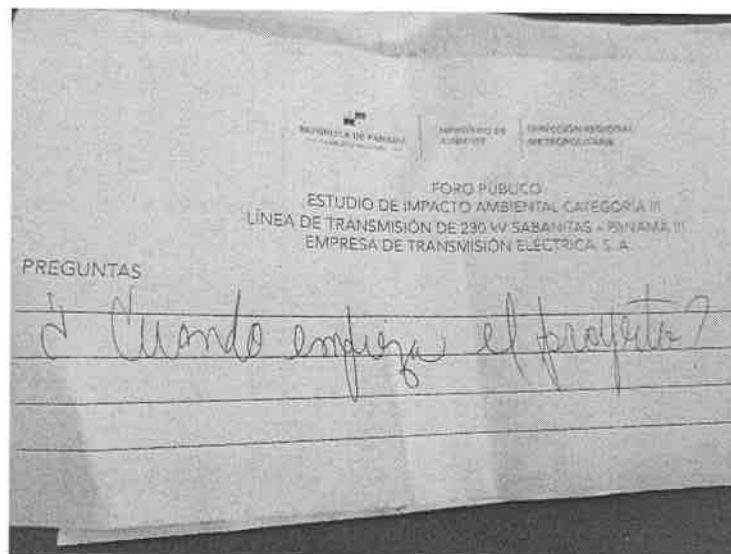 REPÚBLICA DE PANAMÁ
MINISTERIO DE
AMBIENTE
DIRECCIÓN REGIONAL
METROPOLITANA
FORO PÚBLICO
ESTUDIO DE IMPACTO AMBIENTAL CATEGORÍA III
LÍNEA DE TRANSMISIÓN DE 230 kV SABANITAS - PANAMÁ III
EMPRESA DE TRANSMISIÓN ELÉCTRICA, S. A.
PREGUNTAS
¿ Cuando empieza el proyecto?